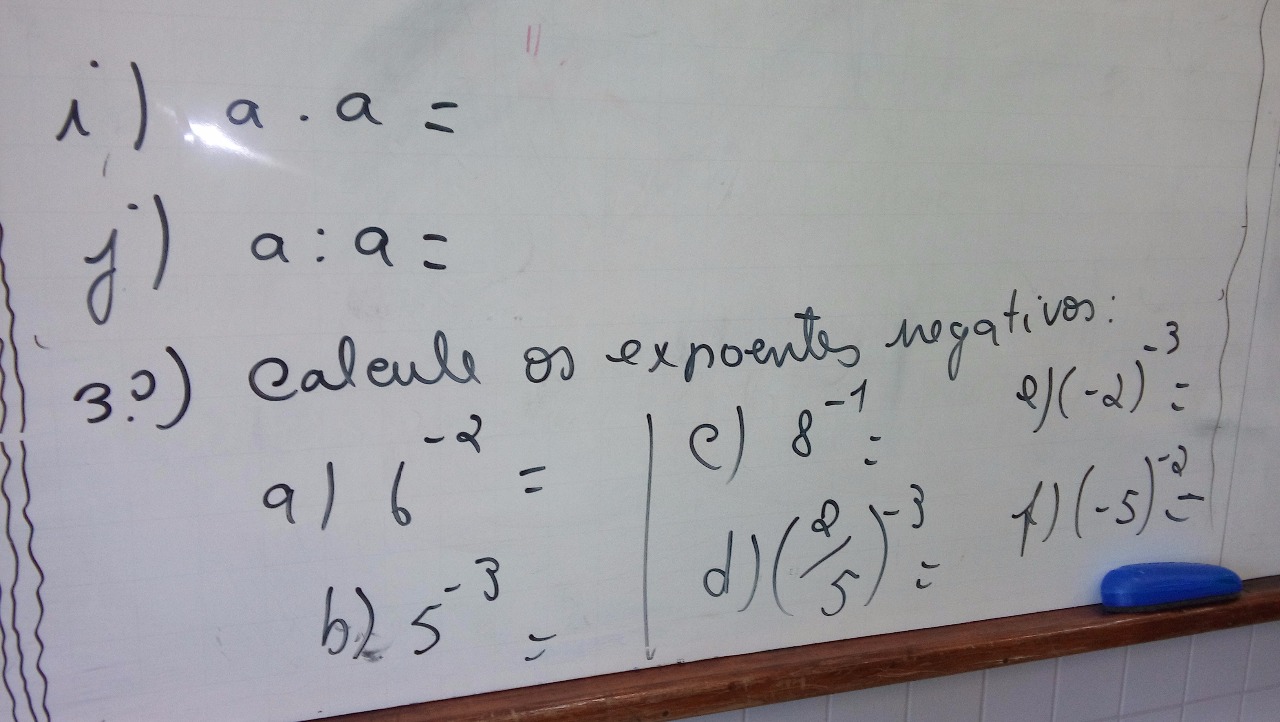 i) a . a =
j) a : a =
3º) Calcule os expoentes negativos:
a) 6⁻² =
b) 5⁻³ =
c) 8⁻¹ =
d) (2/5)⁻³ =
e) (-2)⁻³ =
f) (-5)⁻² =